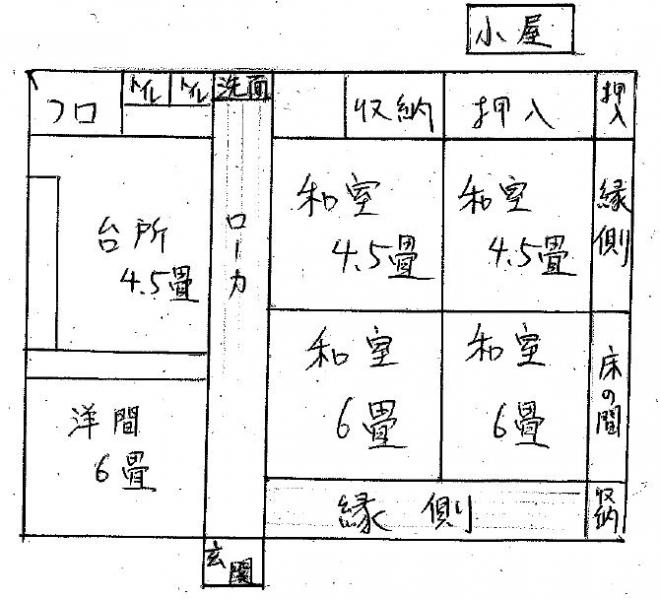 小屋
フロ
トイレ
トイレ
洗面
収納
押入
押入
台所
4.5畳
ローカ
和室
4.5畳
和室
4.5畳
縁側
洋間
6畳
和室
6畳
和室
6畳
床の間
縁側
収納
玄関